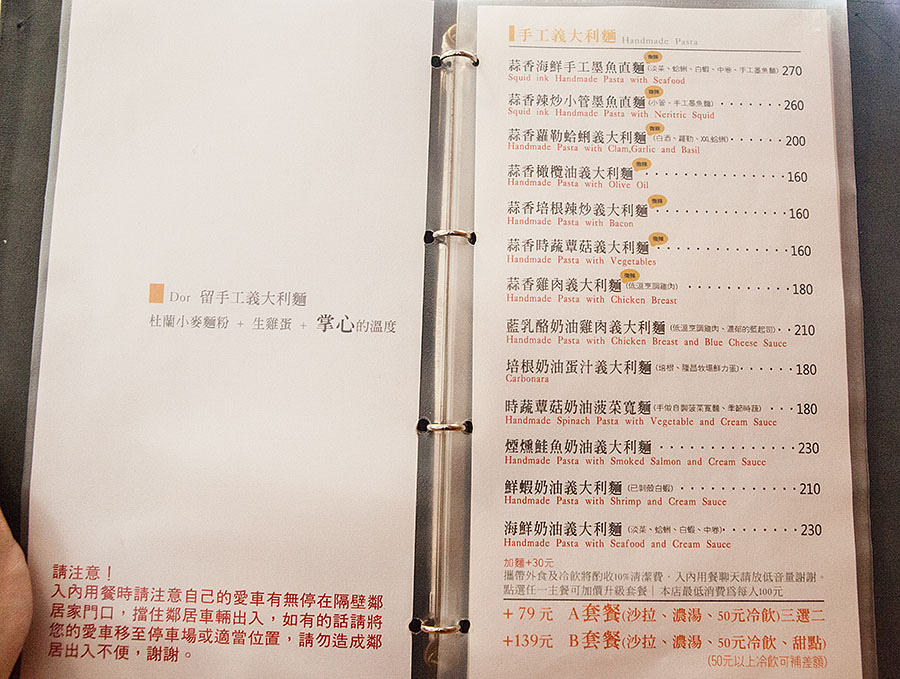 Dor 留手工義大利麵
杜蘭小麥麵粉 + 生雞蛋 + 掌心的溫度
請注意！
入內用餐時請注意自己的愛車有無停在隔壁鄰
居家門口，擋住鄰居車輛出入，如有的話請將
您的愛車移至停車場或適當位置，請勿造成鄰
居出入不便，謝謝。
手工義大利麵 Handmade Pasta
蒜香海鮮手工墨魚直麵 微辣 (淡菜、蛤蜊、白蝦、中卷、手工墨魚麵) 270
Squid ink Handmade Pasta with Seafood
蒜香辣炒小管墨魚直麵 微辣 (小管、手工墨魚麵) ······· 260
Squid ink Handmade Pasta with Neritric Squid
蒜香蘿勒蛤蜊義大利麵 微辣 (白酒、羅勒、XXL蛤蜊)······ 200
Handmade Pasta with Clam,Garlic and Basil
蒜香橄欖油義大利麵 微辣 ················ 160
Handmade Pasta with Olive Oil
蒜香培根辣炒義大利麵 微辣 ·············· 160
Handmade Pasta with Bacon
蒜香時蔬蕈菇義大利麵 微辣 ·············· 160
Handmade Pasta with Vegetables
蒜香雞肉義大利麵 微辣 (低溫烹調雞肉) ············ 180
Handmade Pasta with Chicken Breast
藍乳酪奶油雞肉義大利麵 (低溫烹調雞肉、濃郁的藍起司)·· 210
Handmade Pasta with Chicken Breast and Blue Cheese Sauce
培根奶油蛋汁義大利麵 (培根、隆昌牧場鮮力蛋)······ 180
Carbonara
時蔬蕈菇奶油菠菜寬麵 (手做自製菠菜寬麵、季節時蔬) ··· 180
Handmade Spinach Pasta with Vegetable and Cream Sauce
煙燻鮭魚奶油義大利麵 ·············· 230
Handmade Pasta with Smoked Salmon and Cream Sauce
鮮蝦奶油義大利麵 (已剝殼白蝦) ············ 210
Handmade Pasta with Shrimp and Cream Sauce
海鮮奶油義大利麵 (淡菜、蛤蜊、白蝦、中卷)········ 230
Handmade Pasta with Seafood and Cream Sauce
加麵+30元
攜帶外食及冷飲將酌收10%清潔費．入內用餐聊天請放低音量謝謝。
點選任一主餐可加價升級套餐｜本店最低消費為每人100元
+ 79 元 A 套餐(沙拉、濃湯、50元冷飲)三選二
+139元 B 套餐(沙拉、濃湯、50元冷飲、甜點)
(50元以上冷飲可補差額)